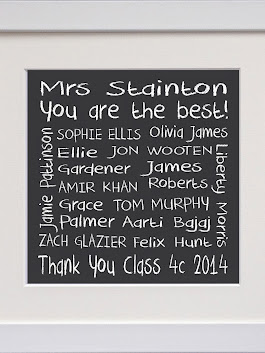 Mrs Stainton
You are the best!
SOPHIE ELLIS Olivia James
Ellie JON WOOTEN
Gardener James
AMIR KHAN Roberts
Grace TOM MURPHY
Palmer Aarti Bajaj
ZACH GLAZIER Felix Hunt
Jamie Pattinson
Liberty Morris
Thank You Class 4c 2014